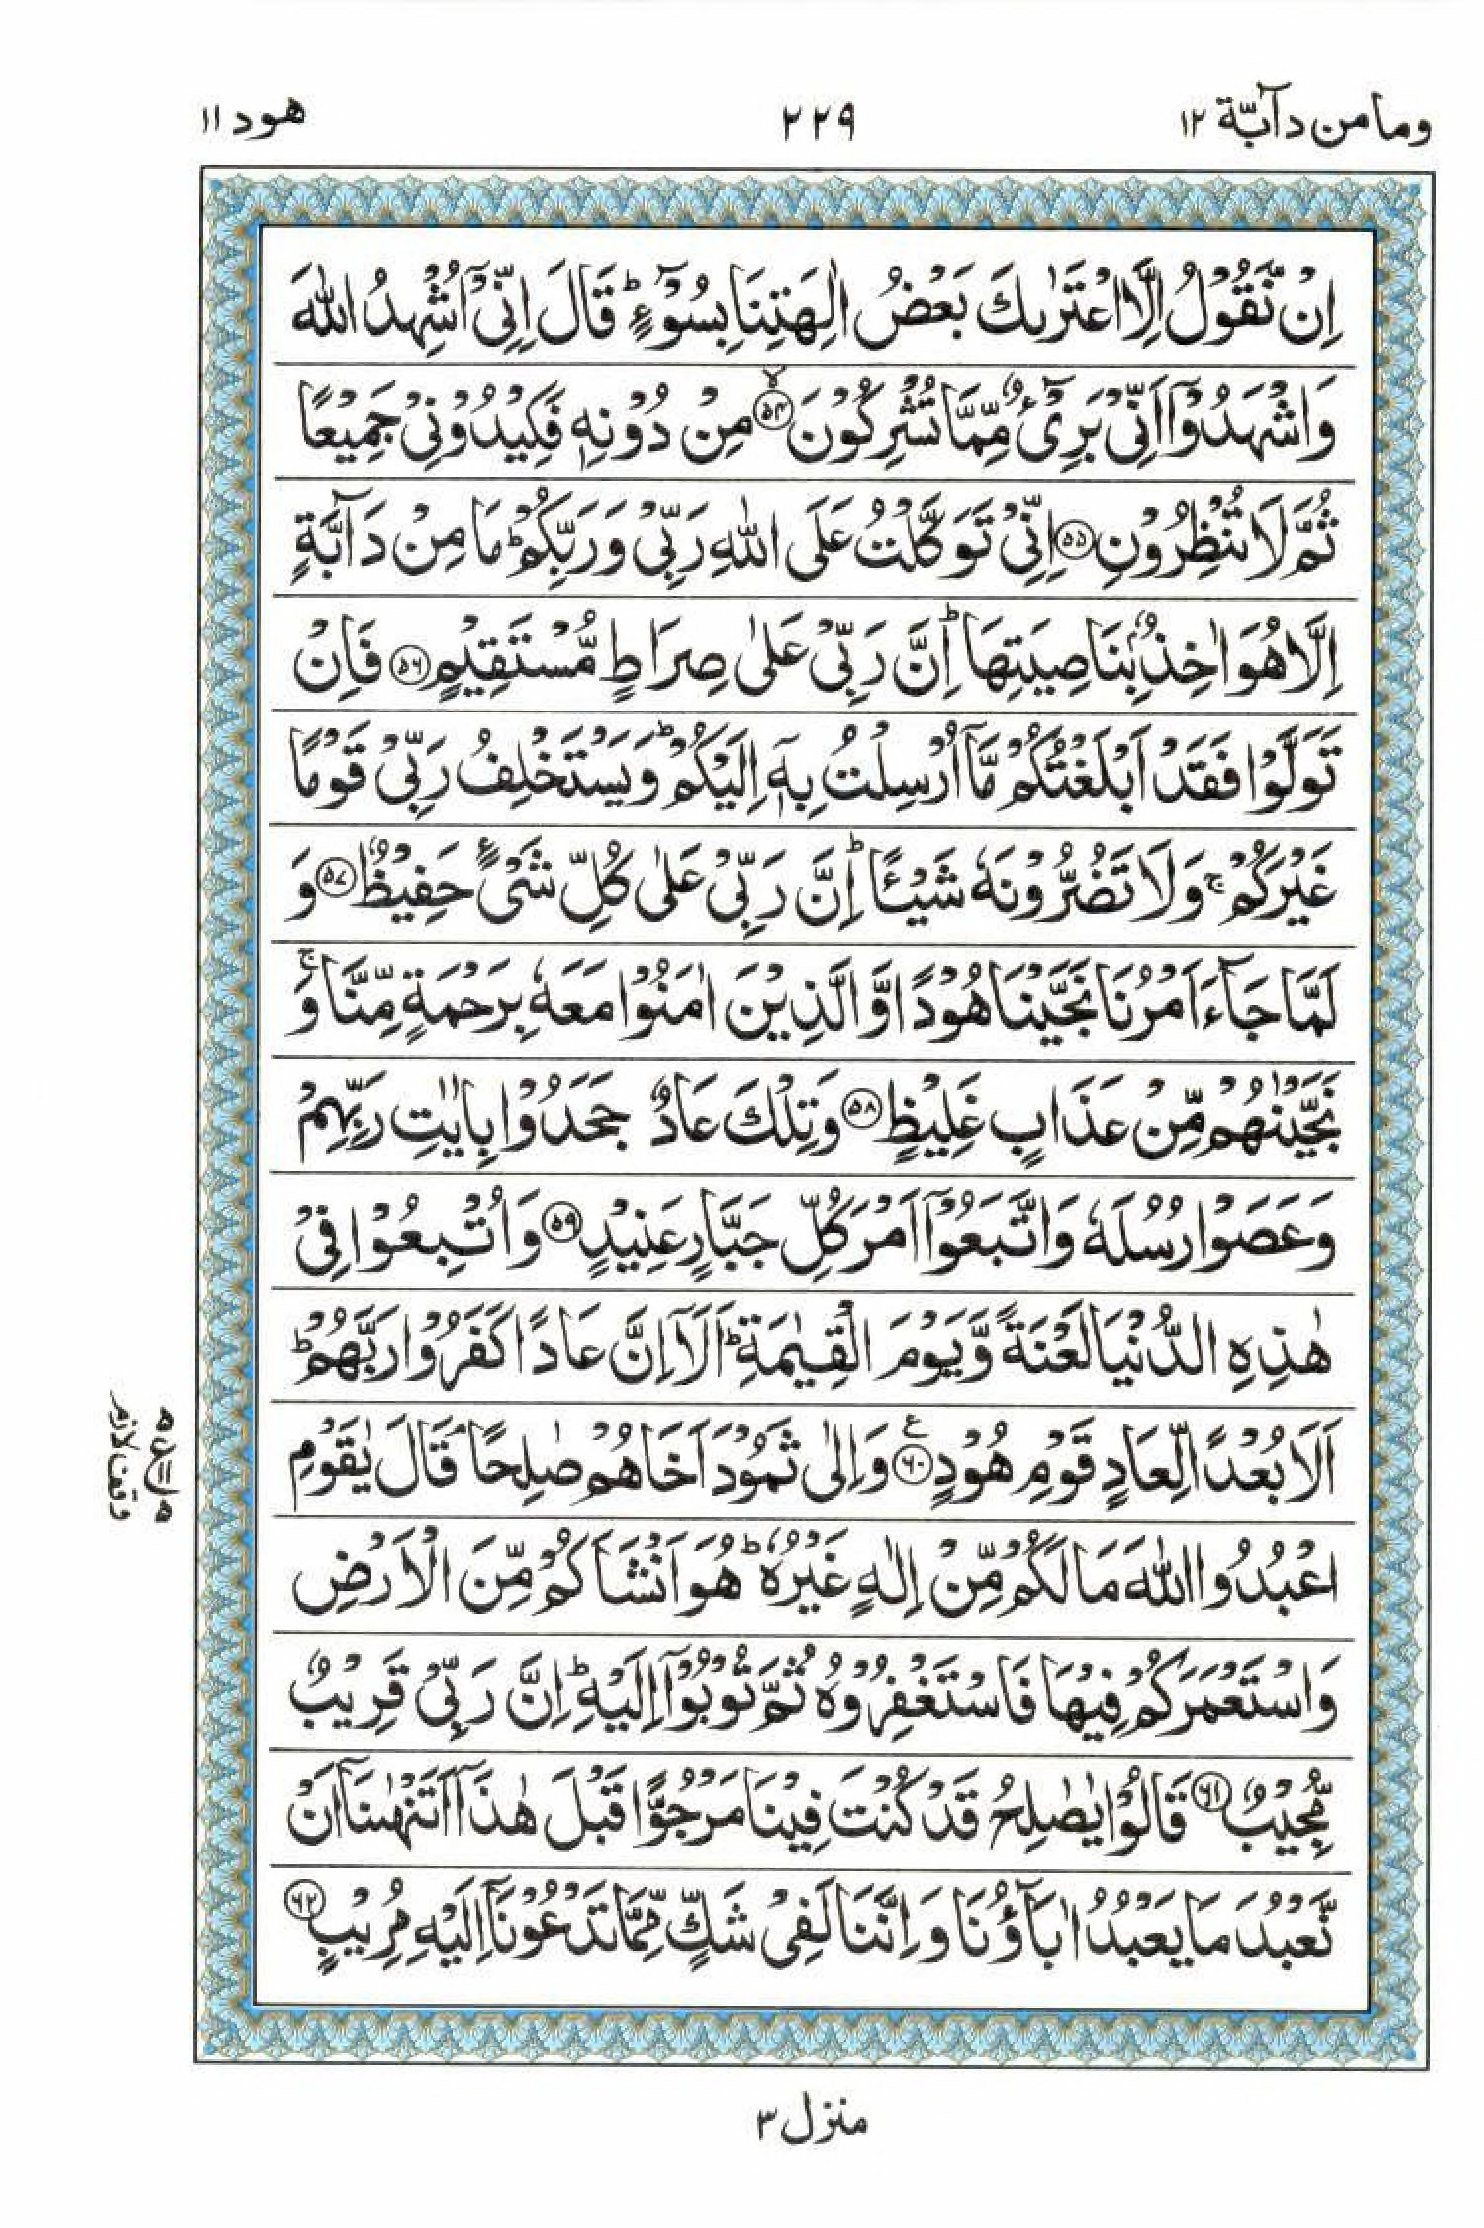 وما من دآبّة ١٢
٢٢٩
هود ١١
اِنْ نَّقُوْلُ اِلَّا اعْتَرٰىكَ بَعْضُ اٰلِهَتِنَا بِسُوْٓءٍ ؕ قَالَ اِنِّیْۤ اُشْهِدُ اللّٰهَ
وَاشْهَدُوْۤا اَنِّیْ بَرِیْٓءٌ مِّمَّا تُشْرِكُوْنَ ۙ﴿۵۴﴾ مِنْ دُوْنِهٖ فَكِیْدُوْنِیْ جَمِیْعًا
ثُمَّ لَا تُنْظِرُوْنِ ﴿۵۵﴾ اِنِّیْ تَوَكَّلْتُ عَلَی اللّٰهِ رَبِّیْ وَرَبِّكُمْ ؕ مَا مِنْ دَآبَّةٍ
اِلَّا هُوَ اٰخِذٌۢ بِنَاصِیَتِهَا ؕ اِنَّ رَبِّیْ عَلٰی صِرَاطٍ مُّسْتَقِیْمٍ ﴿۵۶﴾ فَاِنْ
تَوَلَّوْا فَقَدْ اَبْلَغْتُكُمْ مَّاۤ اُرْسِلْتُ بِهٖۤ اِلَیْكُمْ ؕ وَیَسْتَخْلِفُ رَبِّیْ قَوْمًا
غَیْرَكُمْ ۚ وَلَا تَضُرُّوْنَهٗ شَیْـًٔا ؕ اِنَّ رَبِّیْ عَلٰی كُلِّ شَیْءٍ حَفِیْظٌ ﴿۵۷﴾ وَ
لَمَّا جَآءَ اَمْرُنَا نَجَّیْنَا هُوْدًا وَّالَّذِیْنَ اٰمَنُوْا مَعَهٗ بِرَحْمَةٍ مِّنَّا ۚ وَ
نَجَّیْنٰهُمْ مِّنْ عَذَابٍ غَلِیْظٍ ﴿۵۸﴾ وَتِلْكَ عَادٌ ۟ جَحَدُوْا بِاٰیٰتِ رَبِّهِمْ
وَعَصَوْا رُسُلَهٗ وَاتَّبَعُوْۤا اَمْرَ كُلِّ جَبَّارٍ عَنِیْدٍ ﴿۵۹﴾ وَاُتْبِعُوْا فِیْ
هٰذِهِ الدُّنْیَا لَعْنَةً وَّیَوْمَ الْقِیٰمَةِ ؕ اَلَاۤ اِنَّ عَادًا كَفَرُوْا رَبَّهُمْ ؕ
اَلَا بُعْدًا لِّعَادٍ قَوْمِ هُوْدٍ ﴿۶۰﴾ ع وَاِلٰی ثَمُوْدَ اَخَاهُمْ صٰلِحًا ۘ قَالَ یٰقَوْمِ
اعْبُدُوا اللّٰهَ مَا لَكُمْ مِّنْ اِلٰهٍ غَیْرُهٗ ؕ هُوَ اَنْشَاَكُمْ مِّنَ الْاَرْضِ
وَاسْتَعْمَرَكُمْ فِیْهَا فَاسْتَغْفِرُوْهُ ثُمَّ تُوْبُوْۤا اِلَیْهِ ؕ اِنَّ رَبِّیْ قَرِیْبٌ
مُّجِیْبٌ ﴿۶۱﴾ قَالُوْا یٰصٰلِحُ قَدْ كُنْتَ فِیْنَا مَرْجُوًّا قَبْلَ هٰذَاۤ اَتَنْهٰىنَاۤ اَنْ
نَّعْبُدَ مَا یَعْبُدُ اٰبَآؤُنَا وَاِنَّنَا لَفِیْ شَكٍّ مِّمَّا تَدْعُوْنَاۤ اِلَیْهِ مُرِیْبٍ ﴿۶۲﴾
وقف لازم
منزل ٣